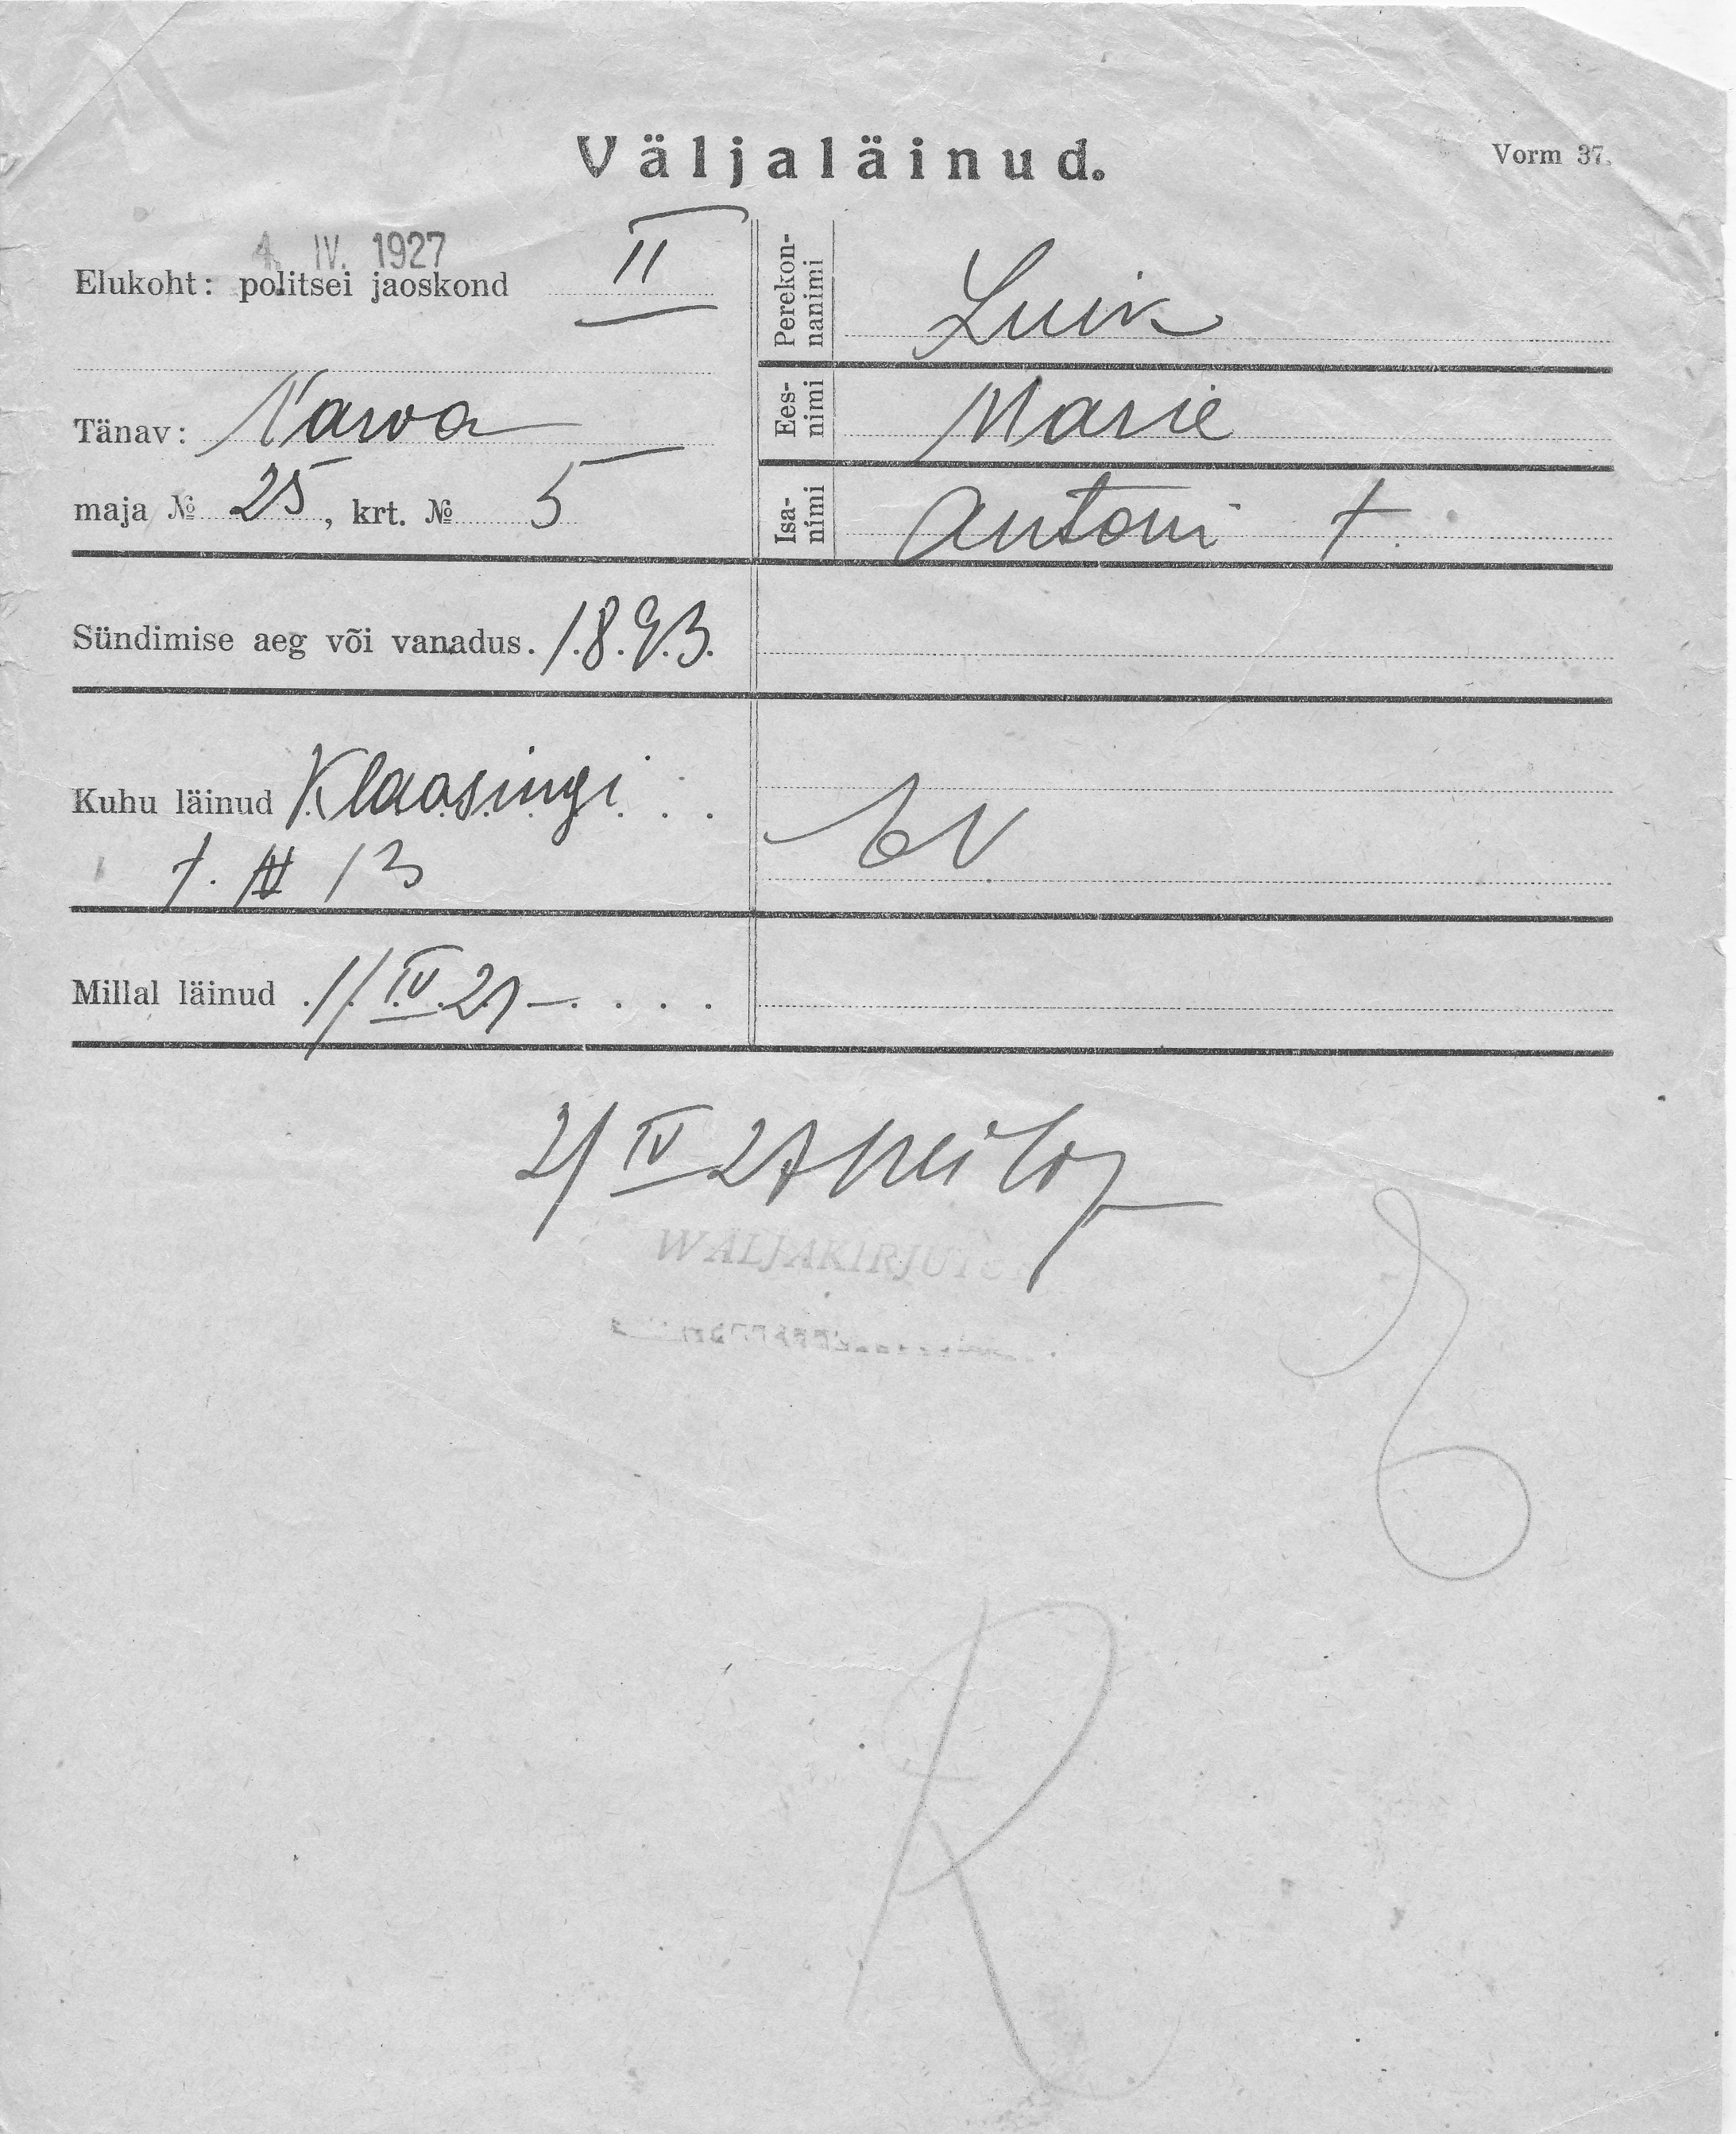 Väljaläinud.
Vorm 37.
4. IV. 1927
Elukoht: politsei jaoskond II
Tänav: Narva
maja № 25, krt. № 5
Perekon-
nanimi
Luik
Ees-
nimi
Marie
Isa-
nimi
Antoni t.
Sündimise aeg või vanadus. 1893.
Kuhu läinud Klaasingi
t. N 13
Millal läinud 1/IV 27
2/IV 27
WÄLJAKIRJUT
R